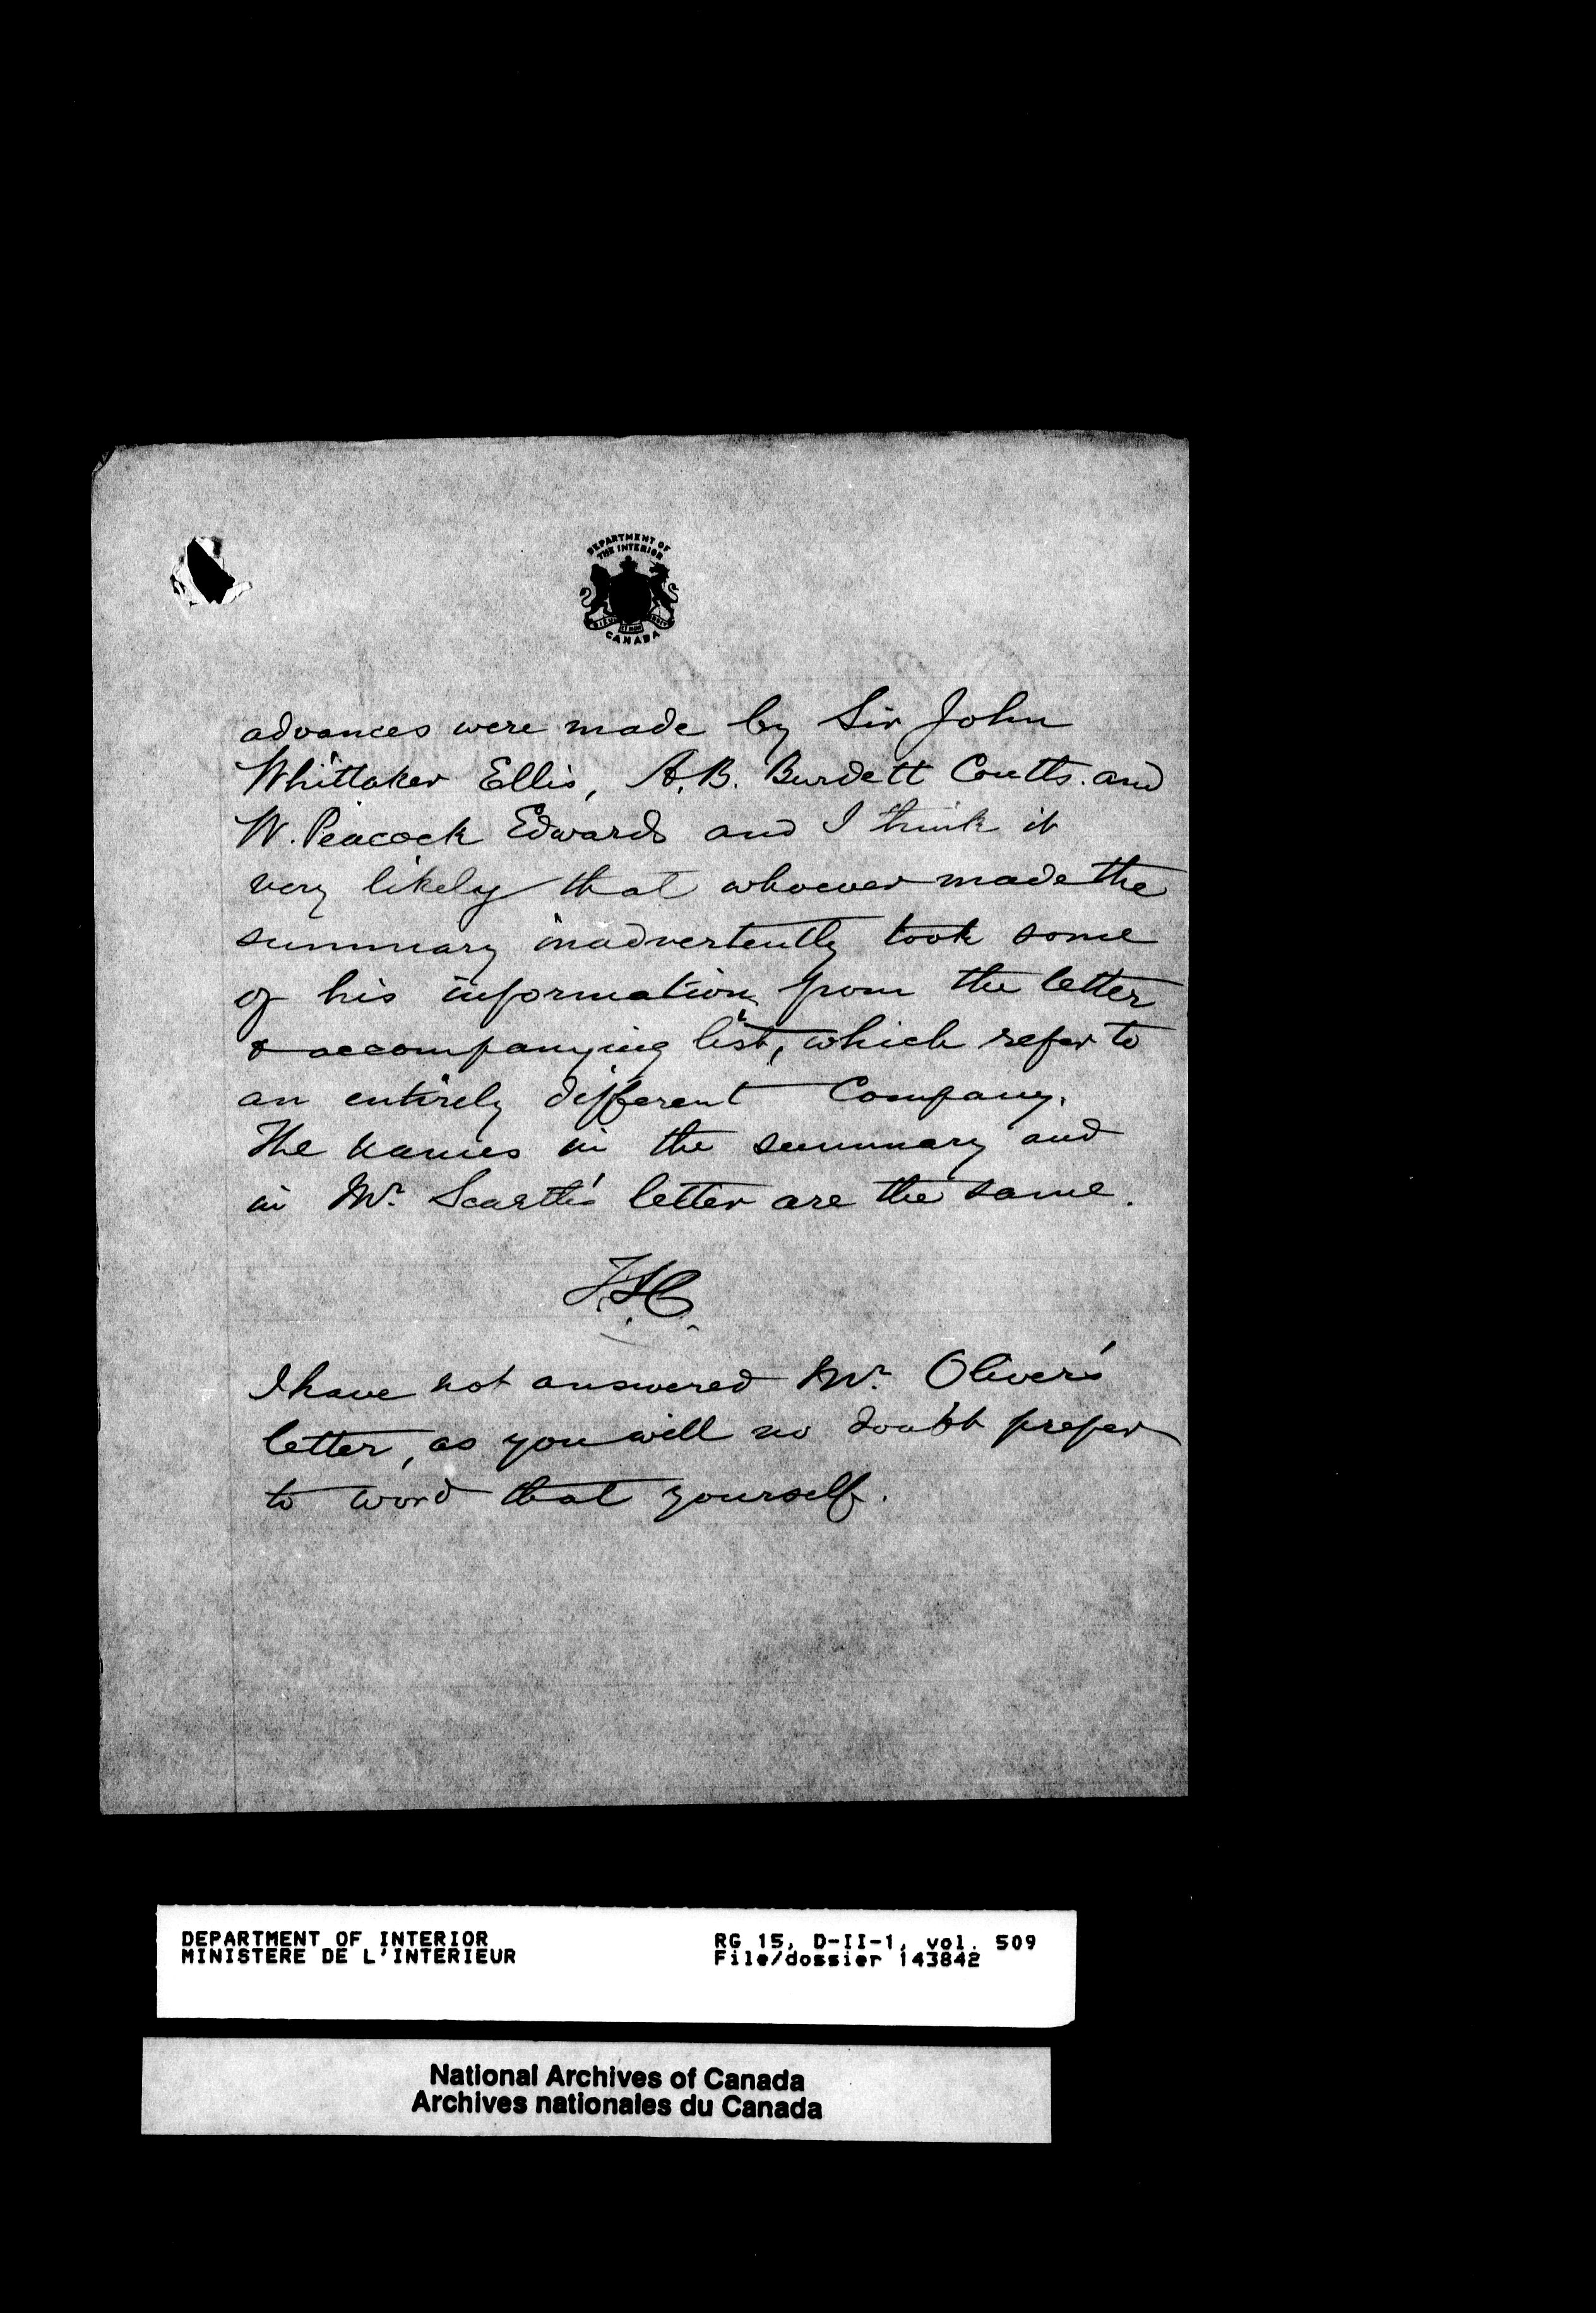 DEPARTMENT OF
THE INTERIOR
CANADA
advances were made by Sir John
Whittaker Ellis, A.B. Burdett Coutts. and
W. Peacock Edwards and I think it
very likely that whoever made the
summary inadvertently took some
of his information from the letter
& accompanying list, which refer to
an entirely different Company.
The names in the summary and
in Mr. Scarth's letter are the same.
I have not answered Mr. Oliver's
letter, as you will no doubt prefer
to word that yourself.
DEPARTMENT OF INTERIOR
MINISTERE DE L'INTERIEUR
RG 15, D-II-1, vol. 509
File/dossier 143842
National Archives of Canada
Archives nationales du Canada